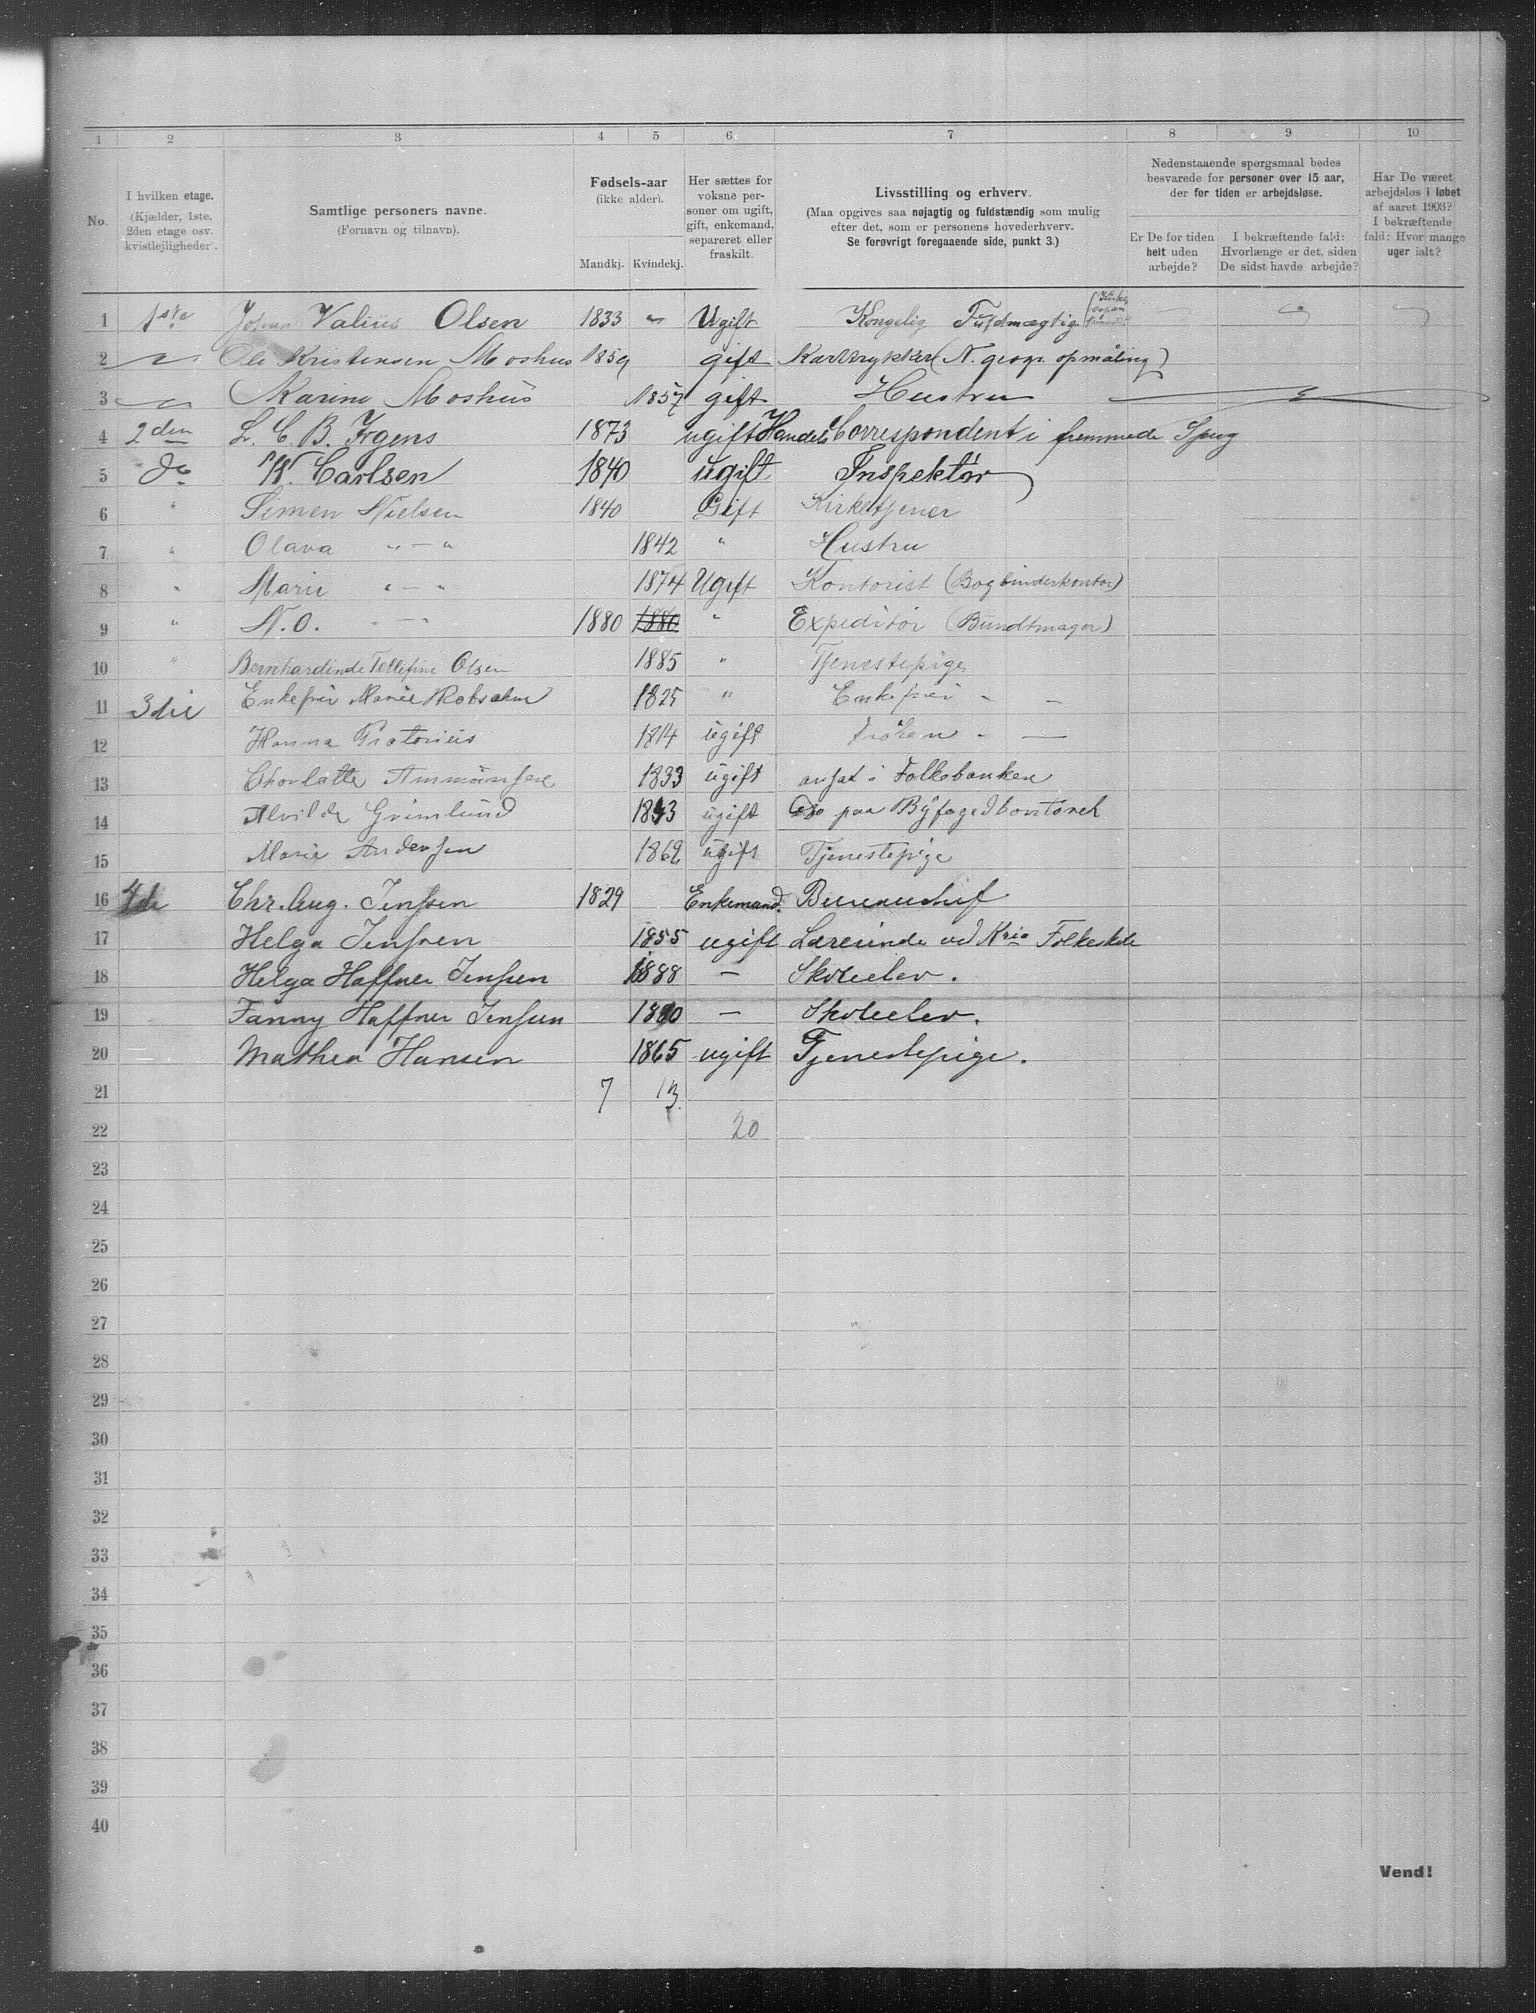 1 2 3 4 5 6 7 8 9 10
No.
I hvilken etage.
(Kjælder, 1ste,
2den etage osv.
kvistlejligheder.
Samtlige personers navne.
(Fornavn og tilnavn).
Fødsels-aar
(ikke alder).
Mandkj. Kvindekj.
Her sættes for
voksne per-
soner om ugift,
gift, enkemand,
separeret eller
fraskilt.
Livsstilling og erhverv.
(Maa opgives saa nøjagtig og fuldstændig som mulig
efter det, som er personens hovederhverv.
Se forøvrigt foregaaende side, punkt 3.)
Nedenstaaende spørgsmaal bedes
besvarede for personer over 15 aar,
der for tiden er arbejdsløse.
Er De for tiden
helt uden
arbejde?
I bekræftende fald:
Hvorlænge er det, siden
De sidst havde arbejde?
Har De været
arbejdsløs i løbet
af aaret 1903?
I bekræftende
fald: Hvor mange
uger ialt?
1 1ste Johan Valius Olsen 1833 " Ugift Kongelig Fuldmægtig
2 Ole Kristensen Moshus 1859 gift Karttrykker (N. geogr. opmåling)
3 Karine Moshus 1857 gift Hustru
4 2den L. C. B. Irgens 1873 ugift Handels Correspondent i fremmede Sprog
5 do W. Carlsen 1840 ugift Inspektør
6 " Simen Nielsen 1840 Gift Kirketjener
7 " Olava " — " 1842 " Hustru
8 " Marie " " 1874 Ugift Kontorist (Bogbinderkontor)
9 " N. O. " — " 1880 1880 " Expeditør (Bundtmager)
10 " Bernhardinde Tellefine Olsen 1885 " Tjenestepige
11 3die Enkefru Marie 1825 " Enkefrue - -
12 Hanna Pretorius 1814 ugift Frøken - —
13 Charlotte 1833 ugift ansat i Folkebanken
14 Alvilde Grimlund 1843 ugift do paa Byfogedkontoret
15 Marie Andersen 1862 ugift Tjenestepige
16 4de Chr. Aug. Jenssen 1829 Enkemand. Bureauchef
17 Helga Jenssen 1855 ugift Lærerinde ved Kria Folkeskole
18 Helga Haffner Jenssen 1888 — Skoleelev.
19 Fanny Haffner Jenssen 1890 — Skoleelev.
20 Mathea Hansen 1865 ugift Tjenestepige.
21 7 13
22 20
23
24
25
26
27
28
29
30
31
32
33
34
35
36
37
38
39
40
Vend!